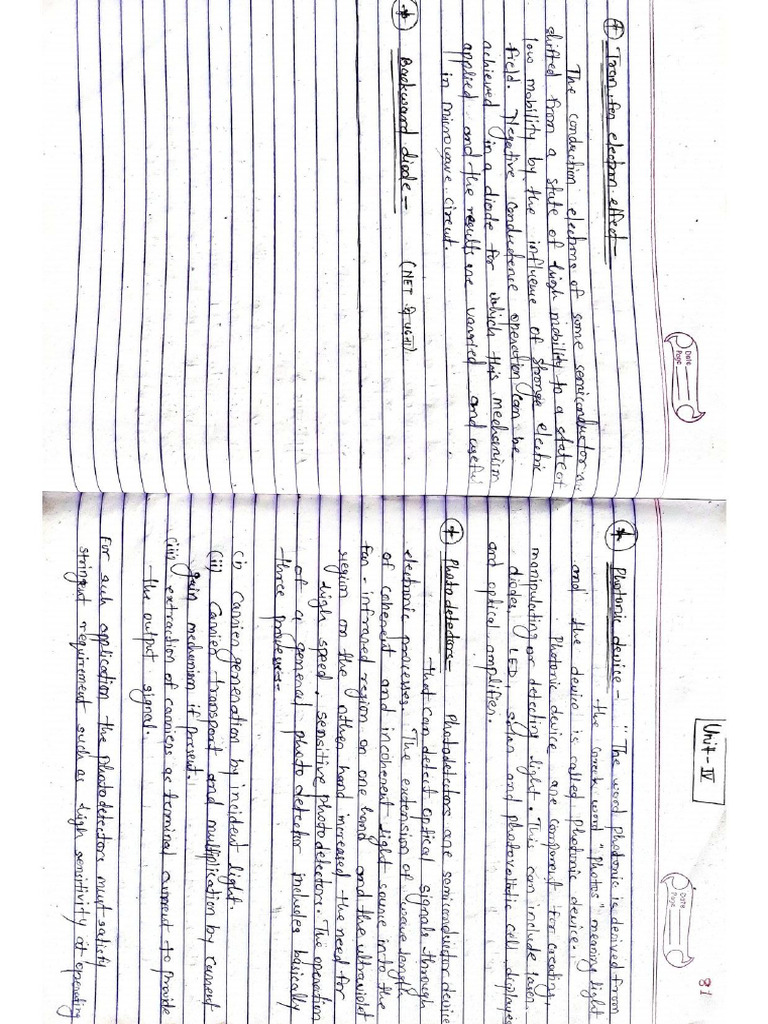 Date
Page
Transfer electron effect -
The conduction electrons of some semiconductor are
shifted from a state of high mobility to a state of
low mobility by the influence of stronge electric
field. Negative conductence operation can be
achieved in a diode for which this mechanism
applied and the results are varried and useful
in microwave circuit.
Backward diode - (NET
81
Date
Page
Unit - IV
Photonic device - "The word photonic is derived from
the Greek word "Photos" meaning light
and the device is called photonic device.
Photonic device are component for creating,
manipulating or detecting light. This can include laser
diodes, LED, solar and photovoltic cell, displayes
and optical amplifier.
Photodetectors - Photodetectors are semiconductor device
that can detect optical signals through
electronic processes. The extension of wave length
of coherent and incoherent light source in to the
far - infrared region on one hand and the ultraviolet
region on the other hand increased the need for
high speed, sensitive photodetectors. The operation
of a general photodetector includes basically
three processes -
(i) Carrier generation by incident light.
(ii) Carrier transport and multiplication by current
gain mechenism if present.
(iii) extraction of carriers as terminal current to provide
the output signal.
For such application the photodetectors must satisfy
stringent requirement such as high sensitivity at operating